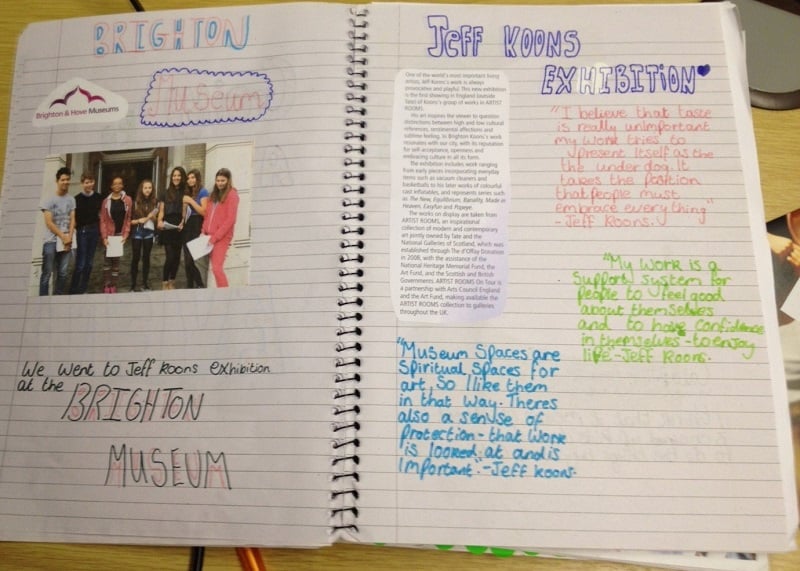 BRIGHTON
Museum
Brighton & Hove Museums
We went to Jeff Koons exhibition
at the BRIGHTON
MUSEUM
JEFF KOONS
EXHIBITION
One of the world's most important living
artists, Jeff Koons's work is always
provocative and playful. This new exhibition
is the first showing in England (outside
Tate) of Koons's group of works in ARTIST
ROOMS.
His art inspires the viewer to question
distinctions between high and low cultural
references, sentimental affections and
sublime feeling. In Brighton Koons's work
resonates with our city, with its reputation
for self-acceptance, openness and
embracing culture in all its forms.
The exhibition includes work ranging
from early pieces incorporating everyday
items such as vacuum cleaners and
basketballs to his later works of colourful
cast inflatables, and represents series such
as The New, Equilibrium, Banality, Made in
Heaven, Easyfun and Popeye.
The works on display are taken from
ARTIST ROOMS, an inspirational
collection of modern and contemporary
art jointly owned by Tate and the
National Galleries of Scotland, which was
established through The d'Offay Donation
in 2008, with the assistance of the
National Heritage Memorial Fund, the
Art Fund, and the Scottish and British
Governments. ARTIST ROOMS On Tour is
a partnership with Arts Council England
and the Art Fund, making available the
ARTIST ROOMS collection to galleries
throughout the UK.
"I believe that taste
is really unimportant
my work tries to
present itself as the
the under dog. It
takes the position
that people must
embrace everything"
- Jeff Koons.
"My work is a
Support system for
people to feel good
about themselves
and to have confidence
in themselves - to enjoy
life" - Jeff Koons.
"Museum Spaces are
Spiritual Spaces for
art, So I like them
in that way. Theres
also a senuse of
protection - that work
is looked at and is
important." - Jeff Koons.